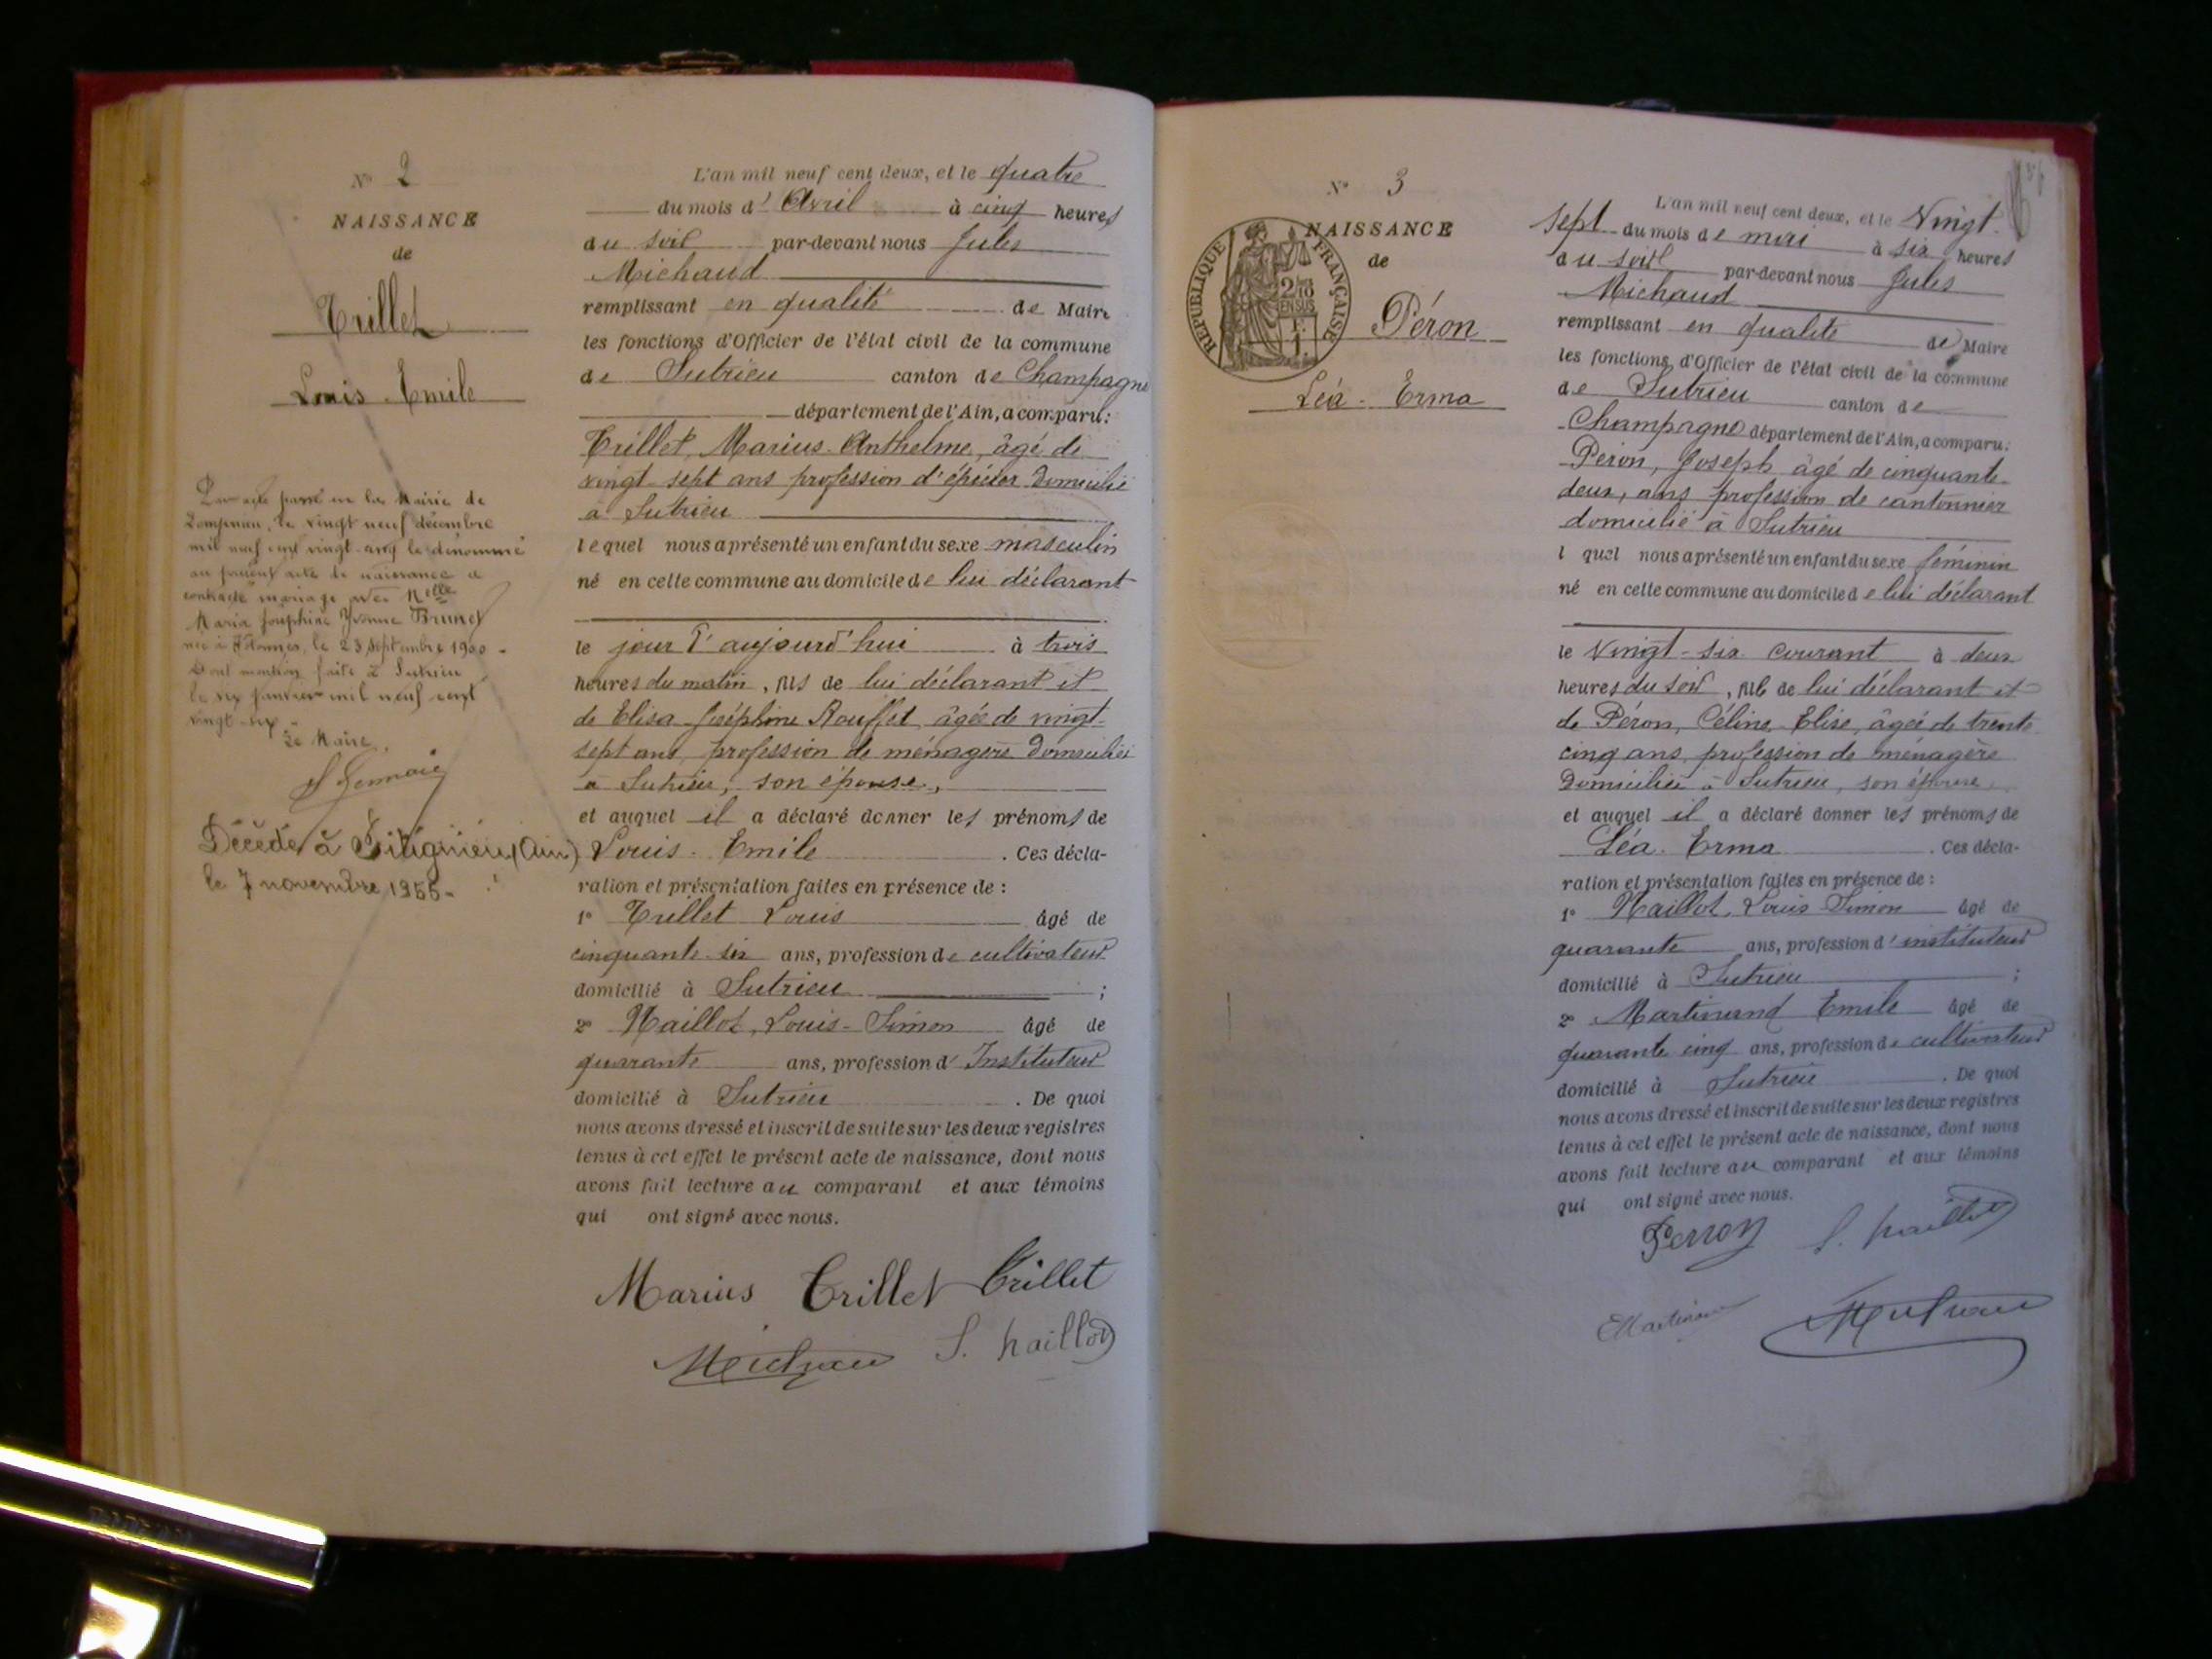 N° 2
NAISSANCE
de
Trillet
Louis Emile
Par acte passé en la Mairie de
le vingt neuf décembre
mil neuf cent vingt cinq le dénommé
au présent acte de naissance a
contracté mariage avec Melle
Maria Joséphine Yvonne Brunet
née à le 23 septembre 1900
Dont mention faite à Sutrieu
le six janvier mil neuf cent
vingt six
Le Maire,
Décédé à (Ain)
le 7 novembre 1955-
L'an mil neuf cent deux, et le quatre
du mois d'Avril à cinq heures
du soir par-devant nous Jules
Michaud
remplissant en qualité de Maire
les fonctions d'Officier de l'état civil de la commune
de Sutrieu canton de Champagne
département de l'Ain, a comparu:
Trillet, Marius-Anthelme, âgé de
vingt-sept ans profession d'épicier Domicilié
à Sutrieu
lequel nous a présenté un enfant du sexe masculin
né en cette commune au domicile de lui déclarant
le jour d'aujourd'hui à trois
heures du matin, fils de lui déclarant et
de Elisa-Joséphine Rouffet âgée de vingt-
sept ans, profession de ménagère Domiciliée
à Sutrieu, son épouse,
et auquel il a déclaré donner les prénoms de
Louis-Emile. Ces décla-
ration et présentation faites en présence de :
1° Trillet Louis âgé de
cinquante-six ans, profession de cultivateur
domicilié à Sutrieu ;
2° Naillot, Louis-Simon âgé de
quarante ans, profession d'Instituteur
domicilié à Sutrieu. De quoi
nous avons dressé et inscrit de suite sur les deux registres
tenus à cet effet le présent acte de naissance, dont nous
avons fait lecture au comparant et aux témoins
qui ont signé avec nous.
Marius Trillet Trillet
Michaud S. Naillot
N° 3
NAISSANCE
de
REPUBLIQUE FRANÇAISE
2/10 EN SUS
Péron
Léa-Erma
L'an mil neuf cent deux, et le Vingt-
sept du mois de mai à six heures
du soir par-devant nous Jules
Michaud
remplissant en qualité de Maire
les fonctions d'Officier de l'état civil de la commune
de Sutrieu canton de
Champagne département de l'Ain, a comparu:
Péron, Joseph âgé de cinquante-
deux, ans profession de cantonnier
domicilié à Sutrieu
l quel nous a présenté un enfant du sexe féminin
né en cette commune au domicile de lui déclarant
le Vingt-six courant à deux
heures du soir, fille de lui déclarant et
de Péron, Céline-Elise, âgée de trente
cinq ans, profession de ménagère
Domiciliée à Sutrieu, son épouse,
et auquel il a déclaré donner les prénoms de
Léa-Erma. Ces décla-
ration et présentation faites en présence de :
1° Naillot, Louis Simon âgé de
quarante ans, profession d'instituteur
domicilié à Sutrieu ;
2° Martinand Emile âgé de
quarante cinq ans, profession de cultivateur
domicilié à Sutrieu. De quoi
nous avons dressé et inscrit de suite sur les deux registres
tenus à cet effet le présent acte de naissance, dont nous
avons fait lecture au comparant et aux témoins
qui ont signé avec nous.
Perron S. Naillot
EMartinand Michaud